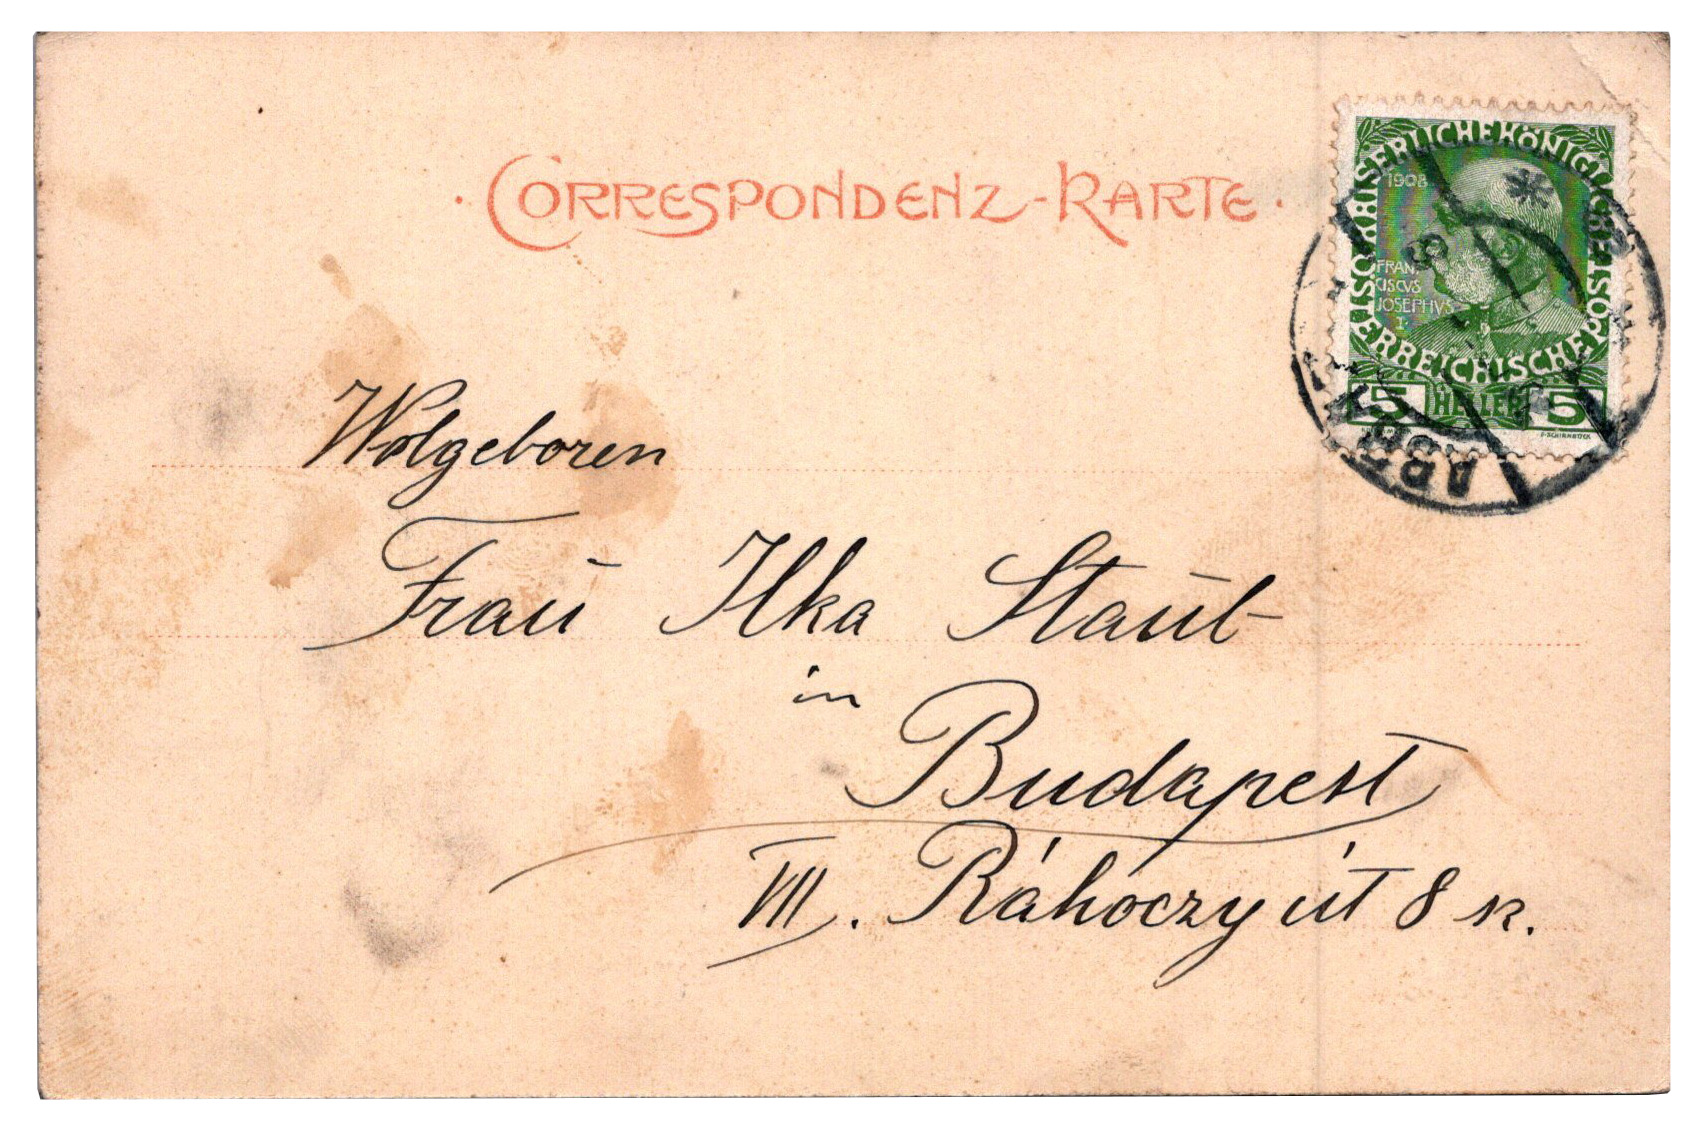 · CORRESPONDENZ-KARTE ·
KAISERLICHE KÖNIGLICHE ÖSTERREICHISCHE POST
1908
FRAN
CISCVS
JOSEPHVS
I·
5 HELLER 5
F·SCHIRNBÖCK
Wolgeboren
Fraŭ Ilka Staŭb
in
Budapest
VIII. Rákoczy út 8 sz.